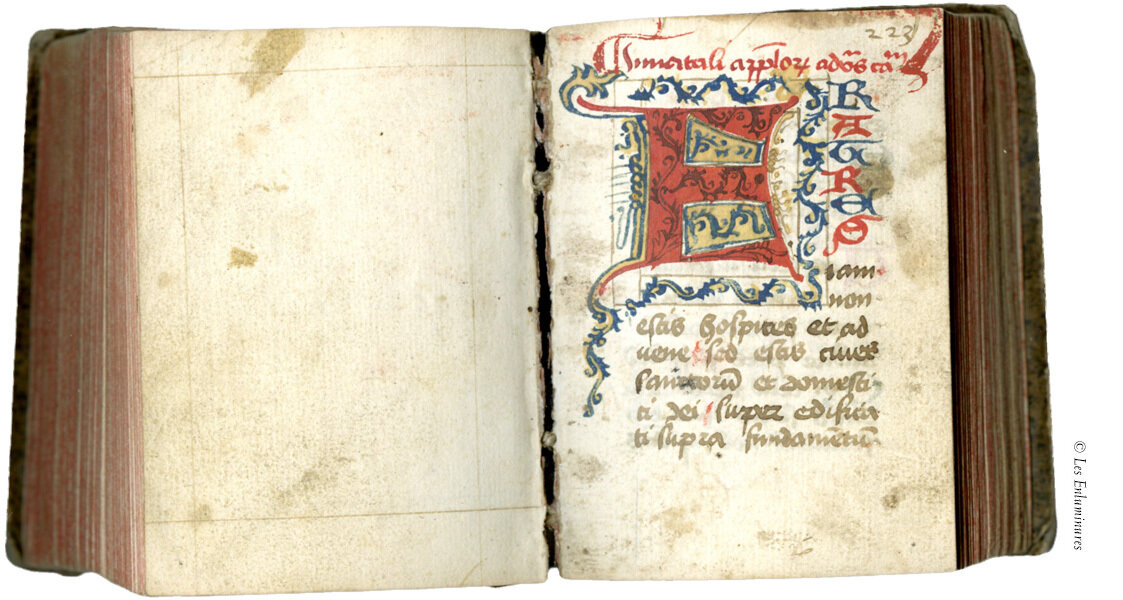 223
In natali apl'oꝝ ad v̄s ca^m
F
R
A
T
R
E
S
iam
non
estis hospites et ad
uene sed estis ciues
sanctorū et domesti
ci dei super edifica
ti supra fundamētū
© Les Enluminures